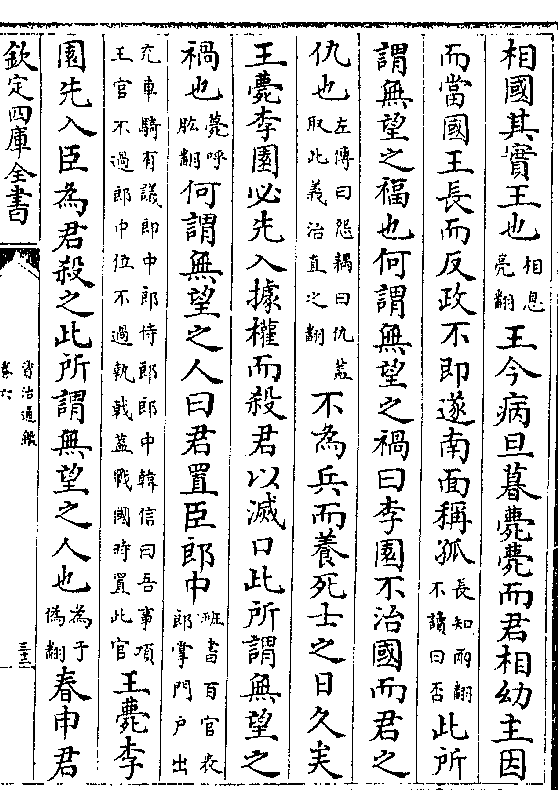 相國其實王也相息亮翻王今病旦暮薨薨而君相幼主因
而當國王長而反政不即遂南面稱孤長知兩翻不讀曰否此所
謂無望之福也何謂無望之禍曰李園不治國而君之
仇也左傳曰怨耦曰仇蓋取此義治直之翻不為兵而養死士之日久矣
王薨李園必先入據權而殺君以滅口此所謂無望之
禍也薨呼肱翻何謂無望之人曰君置臣郎中班書百官表郎掌門户出
充車騎有議郎中郎侍郎郎中韓信曰吾事項王官不過郎中位不過執戟蓋戰國時置此官王薨李
園先入臣為君殺之此所謂無望之人也為于偽翻春申君
欽定四庫全書
資治通鑑
卷六
三十三